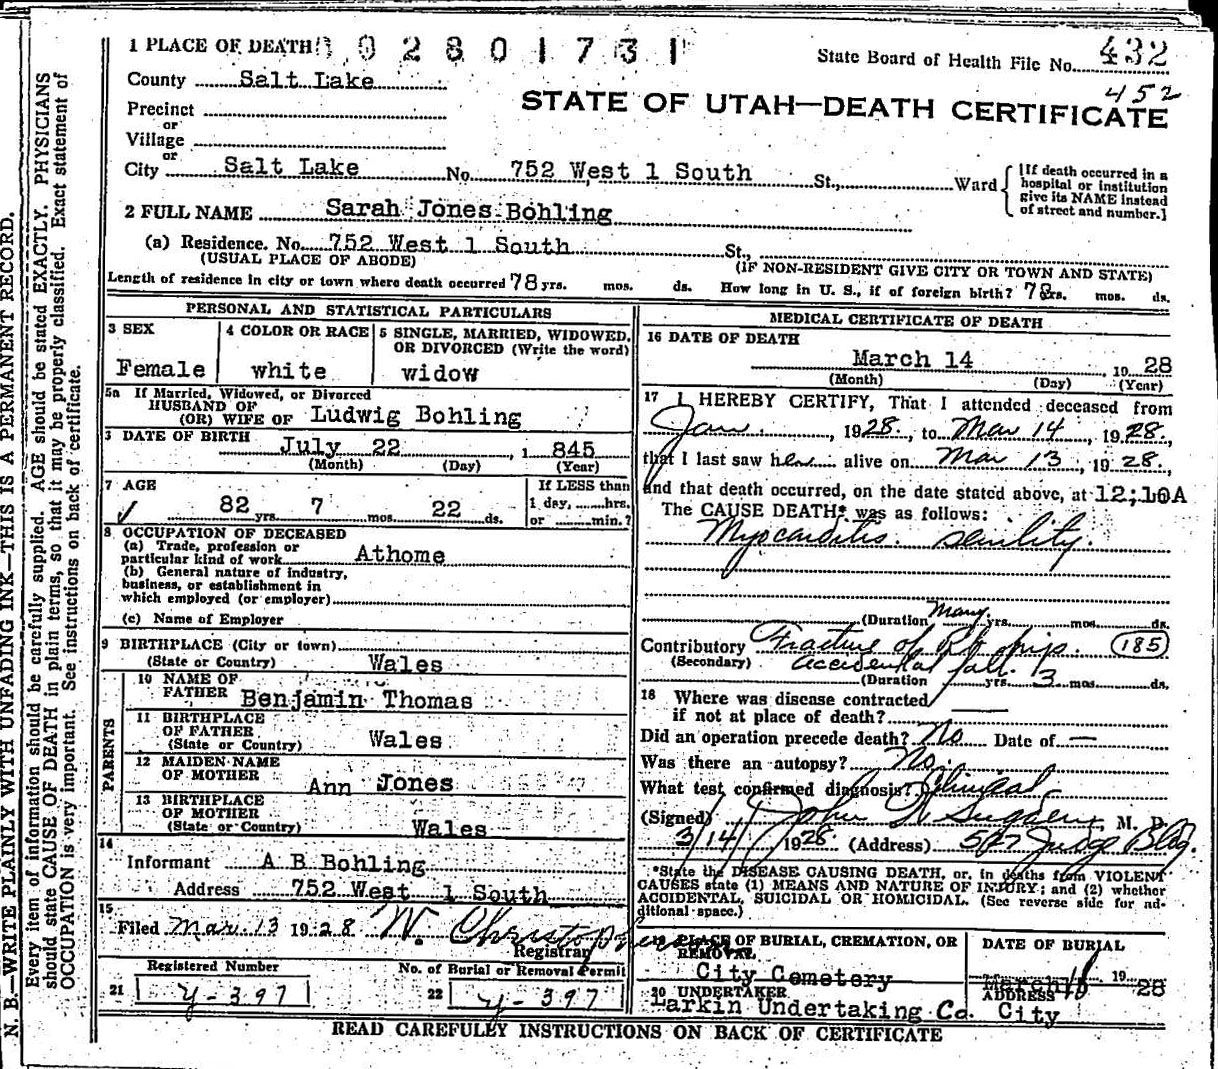 1 PLACE OF DEATH 0 0 2 8 0 1 7 3 1
State Board of Health File No. 432
452
County Salt Lake
STATE OF UTAH—DEATH CERTIFICATE
Precinct
or
Village
or
City Salt Lake No. 752 West 1 South St., Ward
[If death occurred in a
hospital or institution
give its NAME instead
of street and number.]
2 FULL NAME Sarah Jones Bohling
(a) Residence. No. 752 West 1 South St.,
(USUAL PLACE OF ABODE) (IF NON-RESIDENT GIVE CITY OR TOWN AND STATE)
Length of residence in city or town where death occurred 78 yrs. mos. ds. How long in U. S., if of foreign birth? 78 yrs. mos. ds.
PERSONAL AND STATISTICAL PARTICULARS
3 SEX
Female
4 COLOR OR RACE
white
5 SINGLE, MARRIED, WIDOWED,
OR DIVORCED (Write the word)
widow
5a If Married, Widowed, or Divorced
HUSBAND OF
(OR) WIFE OF Ludwig Bohling
DATE OF BIRTH July 22, 1 845
(Month) (Day) (Year)
7 AGE
82 yrs. 7 mos. 22 ds.
If LESS than
1 day, hrs.
or min.?
8 OCCUPATION OF DECEASED
(a) Trade, profession or
particular kind of work Athome
(b) General nature of industry,
business, or establishment in
which employed (or employer)
(c) Name of Employer
9 BIRTHPLACE (City or town)
(State or Country) Wales
PARENTS
10 NAME OF
FATHER Benjamin Thomas
11 BIRTHPLACE
OF FATHER
(State or Country) Wales
12 MAIDEN NAME
OF MOTHER Ann Jones
13 BIRTHPLACE
OF MOTHER
(State or Country) Wales
14
Informant A B Bohling
Address 752 West 1 South
15
Filed Mar. 13 1928 W. Christopherson
Registrar
Registered Number No. of Burial or Removal Permit
21 Y-397 22 Y-397
MEDICAL CERTIFICATE OF DEATH
16 DATE OF DEATH
March 14 1928
(Month) (Day) (Year)
17 I HEREBY CERTIFY, That I attended deceased from
Jan. , 1928, to Mar 14, 1928,
that I last saw her alive on Mar 13, 1928,
and that death occurred, on the date stated above, at 12;10A
The CAUSE DEATH* was as follows:
Myocarditis. senility.
(Duration Many yrs. mos. ds.
Contributory Fracture of Rt hip. (185)
(Secondary) accidental fall.
(Duration yrs. 3 mos. ds.
18 Where was disease contracted
if not at place of death? —
Did an operation precede death? No Date of —
Was there an autopsy? No.
What test confirmed diagnosis? Clinical
(Signed) John W Sugden, M. D.
3/14/ 1928 (Address) 527 Judge Bldg.
*State the DISEASE CAUSING DEATH, or, in deaths from VIOLENT
CAUSES state (1) MEANS AND NATURE OF INJURY; and (2) whether
ACCIDENTAL, SUICIDAL OR HOMICIDAL. (See reverse side for ad-
ditional space.)
19 PLACE OF BURIAL, CREMATION, OR
REMOVAL
City Cemetery
DATE OF BURIAL
March 18 1928
20 UNDERTAKER
Larkin Undertaking Co.
ADDRESS
City
READ CAREFULLY INSTRUCTIONS ON BACK OF CERTIFICATE
N. B.—WRITE PLAINLY WITH UNFADING INK—THIS IS A PERMANENT RECORD.
Every item of information should be carefully supplied. AGE should be stated EXACTLY. PHYSICIANS
should state CAUSE OF DEATH in plain terms, so that it may be properly classified. Exact statement of
OCCUPATION is very important. See instructions on back of certificate.